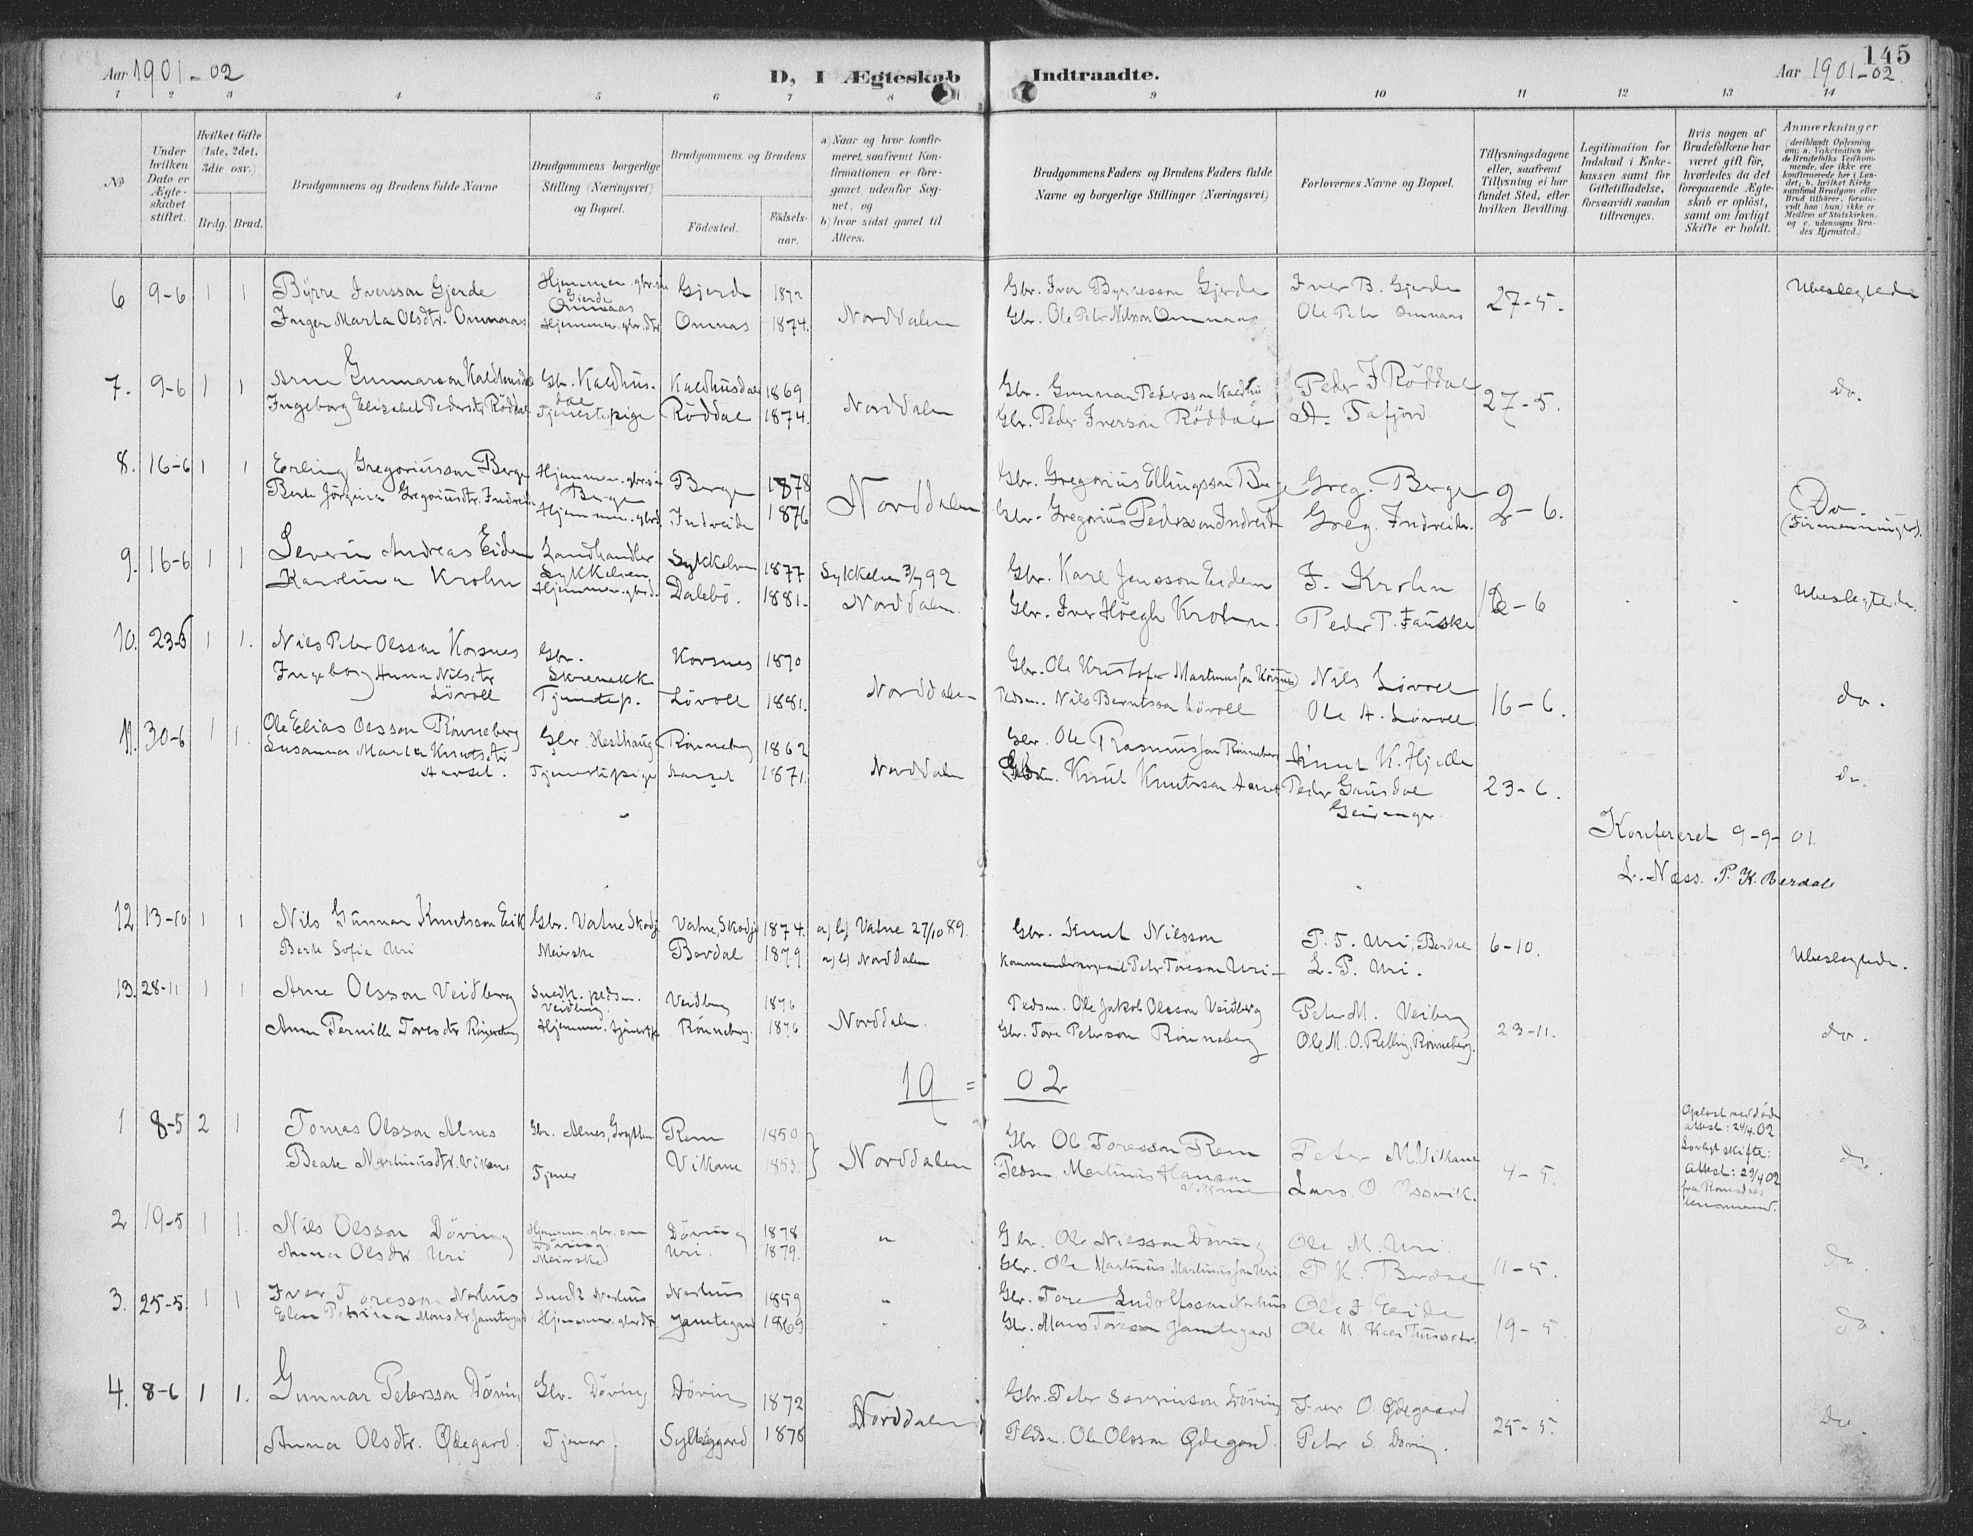 Aar 1901-02
D, I Ægteskab Indtraadte.
Aar 1901-02.
145
1 2 3 4 5 6 7 8 9 10 11 12 13 14
No
Under hvilken Dato er Ægteskabet stiftet.
Hvilket Gifte (1ste, 2det, 3die osv.)
Brdg. Brud.
Brudgommens og Brudens fulde Navne
Brudgommens borgerlige Stilling (Næringsvei) og Bopæl.
Brudgommens og Brudens
Fødested. Fødselsaar.
a) Naar og hvor konfirmeret, saafremt Konfirmationen er foregaaet udenfor Sognet, og
b) hvor sidst gaaet til Alters.
Brudgommens Faders og Brudens Faders fulde Navne og borgerlige Stillinger (Næringsvei)
Forlovernes Navne og Bopæl.
Tillysningsdagene eller, saafremt Tillysning ei har fundet Sted, efter hvilken Bevilling
Legitimation for Indskud i Enkekassen samt for Giftetilladelse, forsaavidt saadan tiltrænges.
Hvis nogen af Brudefolkene har været gift før, hvorledes da det foregaaende Ægteskab er opløst, samt om lovligt Skifte er holdt.
Anmærkninger
6 9-6 1 1 Byrre Iversson Gjerde Gjerde Gjerde 1872 Gbr. Iver Byrresson Gjerde Iver B. Gjerde 27-5. Ubeslegtede
Inger Marta Olsdtr. Omnaas Hjemmev. gbr.dtr Omnaas Omnas 1874. Norddalen Gbr. Ole Peter Nilsson Omnaas Ole Peter Omnaas
7. 9-6 1 1 Arne Gunnarson Kaldhusdal Gbr. Kaldhusdal Kaldhusdal 1869 Norddalen Gbr. Gunnar Pedersson Kaldhus Peder I Røddal 27-5. do.
Ingeborg Elisabet Pedersdtr Røddal Tjenestepige Røddal 1874. Gbr. Peder Iverson Røddal A. Tafjord
8. 16-6 1 1 Erling Gregoriusson Berge Berge Berge 1878 Norddalen Gbr. Gregorius Ellingsson Berge Greg. Berge 2-6. Do.
Berte Jørgina Gregoriusdtr. Indreide Indreide 1876 Gbr. Gregorius Pedersson Indreide Greg. Indreide. (Firmenninger).
9. 16-6 1 1 Severin Andreas Eidem Landhandler Sykkelven Sykkelven 1877 Sykkelven 3/7 92 Gbr. Karl Jensson Eidem F. Krohn -6 Ubeslegtede.
Karolina Krohn Dalebø. 1881. Norddalen. Gbr. Iver Høegh Krohn. Peder P. Fauske
10. 23-6 1 1. Nils Peter Olsson Korsnes Gbr. Skrenakk Korsnes 1870 Norddalen Gbr. Ole Kristofer Martinusson Korsnes Nils Løvoll 16-6. do.
Ingeborg Anna Nilsdtr Løvoll Tjenestep. Løvoll 1881. Pedsm. Nils Berntsson Løvoll Ole A. Løvoll
11. 30-6 1 1. Ole Elias Olsson Rønneberg Gbr. Hesthaug Rønneberg 1862 Norddalen Gbr. Ole Rasmusson Rønneberg Knut K. Hjelle 23-6. do.
Susanna Marta Knutsdtr Aarset. Tjenestepige Aarset 1871. Knut Knutsson Aarset Peder Gausdal Geiranger
Konfereret 9-9-01.
L. Næss. P. K. Berdal
12 13-10 1 1 Nils Gunnar Knutsson Eik Gbr. Vatne Skodje Vatne, Skodje 1874. a) b) Vatne 27/10 89. Gbr. Knut Nilsson P. T. Uri, Berdal 6-10. Ubeslegtede.
Berte Sofia Uri Meierske Berdal 1879 a) b) Norddalen Kommandersergeant Peter Toreson Uri L. P. Uri.
13. 28-11 1 1 Arne Olsson Veidberg Snedk. pedsm. Veidberg Veidberg 1876 Norddalen. Pedsm. Ole Jakob Olsson Veidberg Peter M. Veiberg 23-11. do.
Anna Pernille Toresdtr Rønneberg Rønneberg. 1876 Gbr. Tore Peterson Rønneberg Ole M. O. Relling, Rønneberg.
19 = 02
1 8-5 2 1 Tomas Olsson Alnes Gbr. Alnes, Grytten Rem 1850 Norddalen Gbr Ole Toresson Rem Peter M. Vikane 4-5. Opløst ved død attest: 24/4 02 Lovligt skifte: attest: 29/4 02 fra Romsdals lensmand. do.
Beate Martinusdtr. Vikane Tjener Vikane 1853. Pedsm. Martinus Hanson Vikane Lars O Ossvik.
2 19-5 1 1. Nils Olsson Døving Døving Døving 1878 " Gbr. Ole Nilsson Døving Ole M. Uri. 11-5. do.
Anna Olsdtr Uri Meierske Uri. 1879. Gbr. Ole Martinus Martinusson Uri P K. Berdal
3. 25-5. 1 1 Iver Toresson Norhus Snedk Norhus Norhus 1859 " Gbr. Tore Ludolfsson Norhus Ole I. Eide 19-5. do.
Elen Petrina Monsdtr Jamtegard Hjemmev. gbr.dtr. Jamtegard 1869 " Gbr. Mons Toresson Jamtegard Ole M.
4. 8-6 1 1. Gunnar Petersson Døving Gbr. Døving Døving 1872 Norddalen Gbr. Peter Severinson Døving Iver O. Ødegaard 25-5. do.
Anna Olsdtr. Ødegard. Tjener. Syltøgard 1878 Pedsm. Ole Olsson Ødegard. Peter S. Døving.